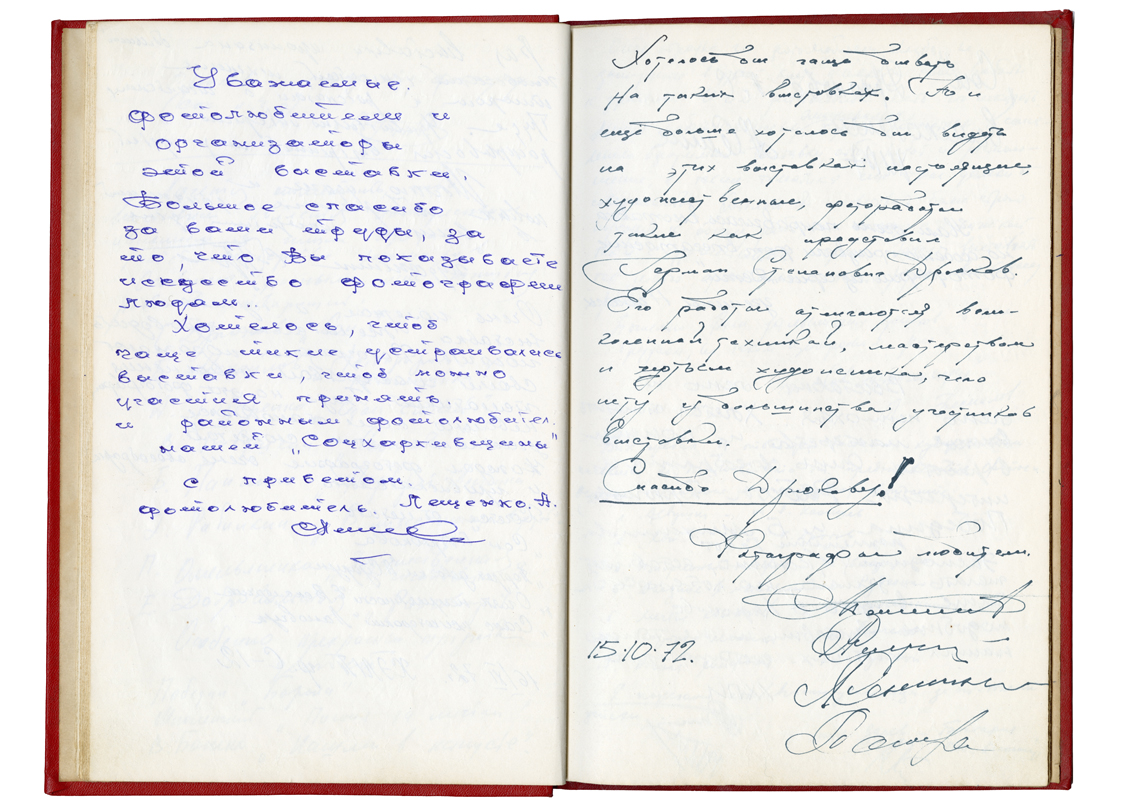 Уважаемые.
фотолюбители и
организаторы
этой выставки.
Большое спасибо
за ваши труды, за
то, что Вы показываете
искусство фотографии
людям..
Хотелось, чтоб
чаще такие устраивались
выставки, чтоб можно
участия принять
и районным фотолюбител.
нашей „Соцхаркивщины"
с приветом.
фотолюбитель. Лещенко. А.
Хотелось бы чаще бывать
на таких выставках. Но и
ещё больше хотелось бы видеть
на этих выставках настоящие,
художественные, фотоработы
такие как представил
Герман Степанович Дрюков.
Его работы отличаются вели-
голепной техникой, мастерством
и чутьём художника, чего
нету у большинства участников
выставки.
Спасибо Дрюкову!
Фотографы любители.
15.10.72.